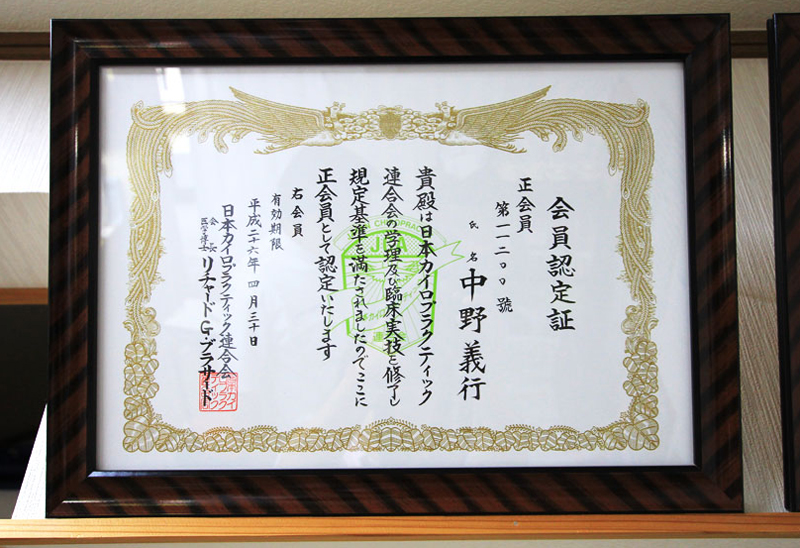 会員認定証
正会員
第一一二〇〇號
氏名 中野義行
貴殿は日本カイロプラクティック
連合会の学理及び臨床実技を修了し
規定基準を満たされましたのでここに
正会員として認定いたします
右会員
有効期限
平成二十六年 四月三十日
日本カイロプラクティック連合会
会長
医学博士 リチャードG・ブラサイド
CHIROPRAC